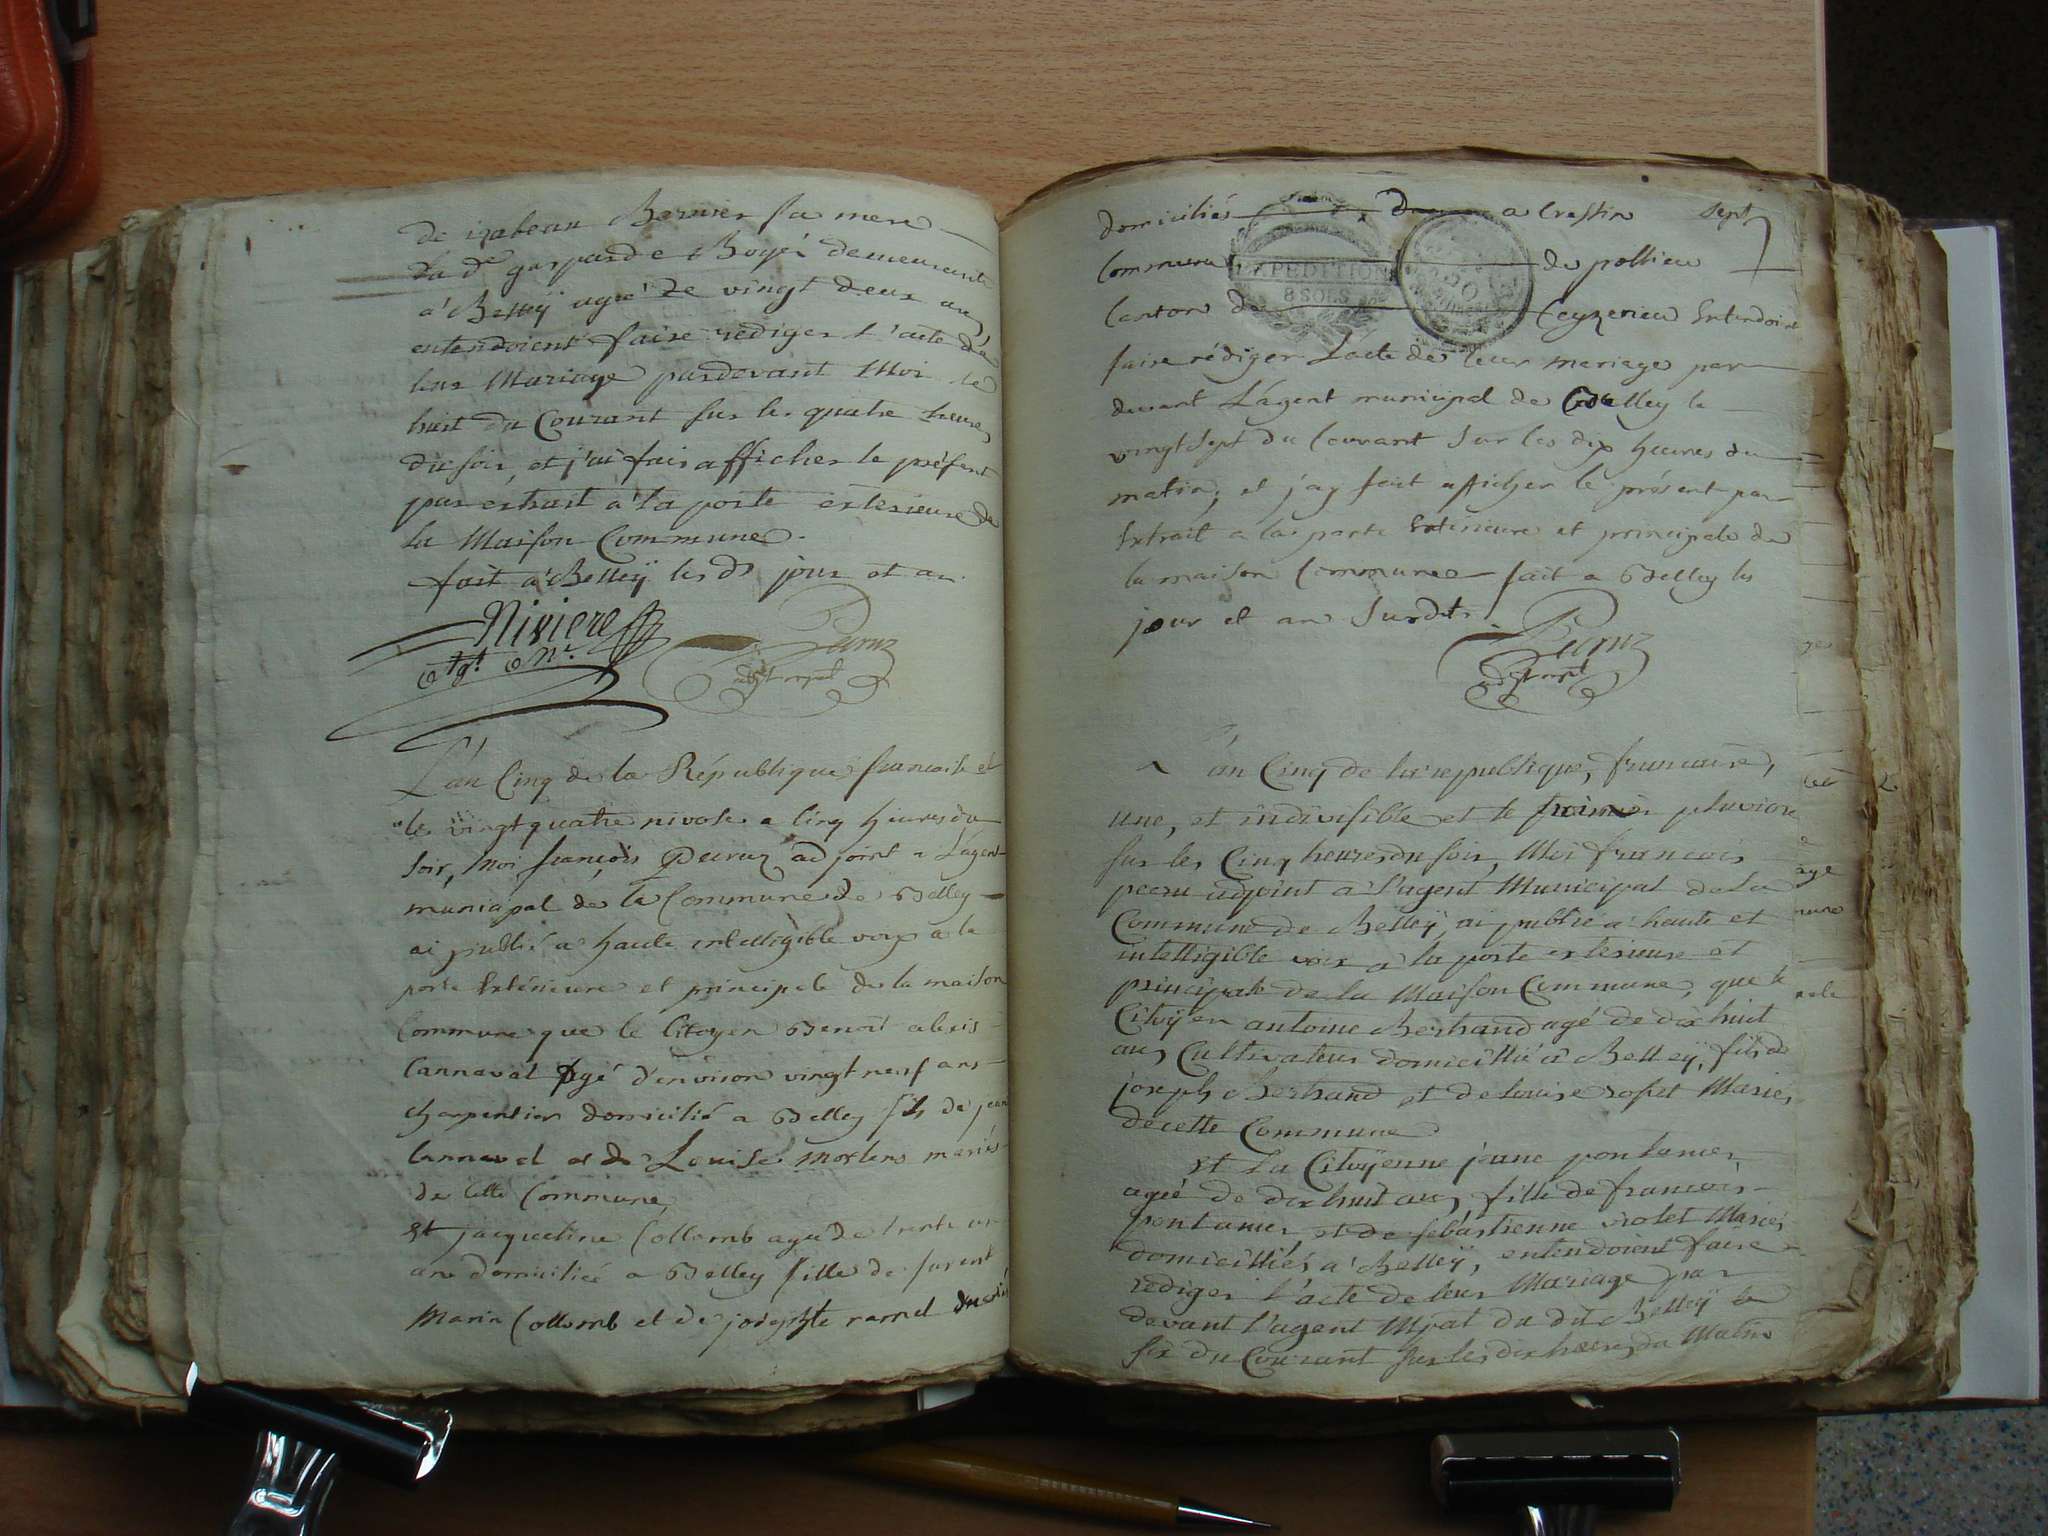 de izabeau Bernier sa mere
La dᵉ gasparde Boyé demeurante
a Belleÿ agée de vingt deux ans,
entendoient faire rediger l'acte de
leur Mariage pardevant Moi le
huit du Courant sur les quatre heures
du soir, et j'ai fais afficher le présent
par extrait a la porte exterieure de
la Maison Commune.
fait a Belleÿ les ds jour et an
Riviere
agt. Mal.
Peruz
adjt mpal
L'an Cinq de la République francoise et
le vingt quatre nivose a Cinq heures du
soir, Moi françois Pecruz adjoint a L'agent
municipal de la Commune de Belley
ai publié a haute intelligible voix a la
porte Extérieure et principale de la maison
Commune que le Citoyen Benoit alexis
Cannaval agé d'environ vingt neuf ans
charpentier domicilié a Belley fils de jean
Cannaval et de Louise mariés
de Cette Commune,
Et jacqueline Collomb agée de trente un
ans domiciliée a Belley fille de
Marin Collomb et de josephte ramel
domiciliés a Cressin
sept
Commune de pollieu
EXPEDITION
8 SOLS
50
Canton de Ceyzerieu Entendoint
faire rédiger L'acte de leur mariage par
devant L'agent municipal de Belley le
vingt sept du Courant sur les dix heures du
matin, et j'ay fait afficher le présent par
Extrait a la porte Exterieure et principale de
la maison Commune fait a Belley les
jour et an Susdit.
Peruz
adjt mpal
L'an Cinq de la republique, francaise,
une, et indivisible et le premier pluviose
sur les Cinq heures du soir, Moi francois
pecru adjoint a l'agent Municipal de La
Commune de Belleÿ, ai publié a haute et
intelligible voix a la porte exterieure et
principale de la Maison Commune, que le
Citoÿen antoine Bertrand agé de dix huit
ans, Cultivateur domicillié a Belleÿ, fils de
joseph Bertrand et de Louise Mariés
de cette Commune
Et La Citoÿenne jeane pontanier
agée de dix huit ans, fille de francois
pontanier et de sebastienne violet Mariés
domicilliés a Belleÿ, entendoient faire
rediger l'acte de leur Mariage par
devant l'agent Mpal du dit Belleÿ le
six du Courant sur les dix heures du Matin